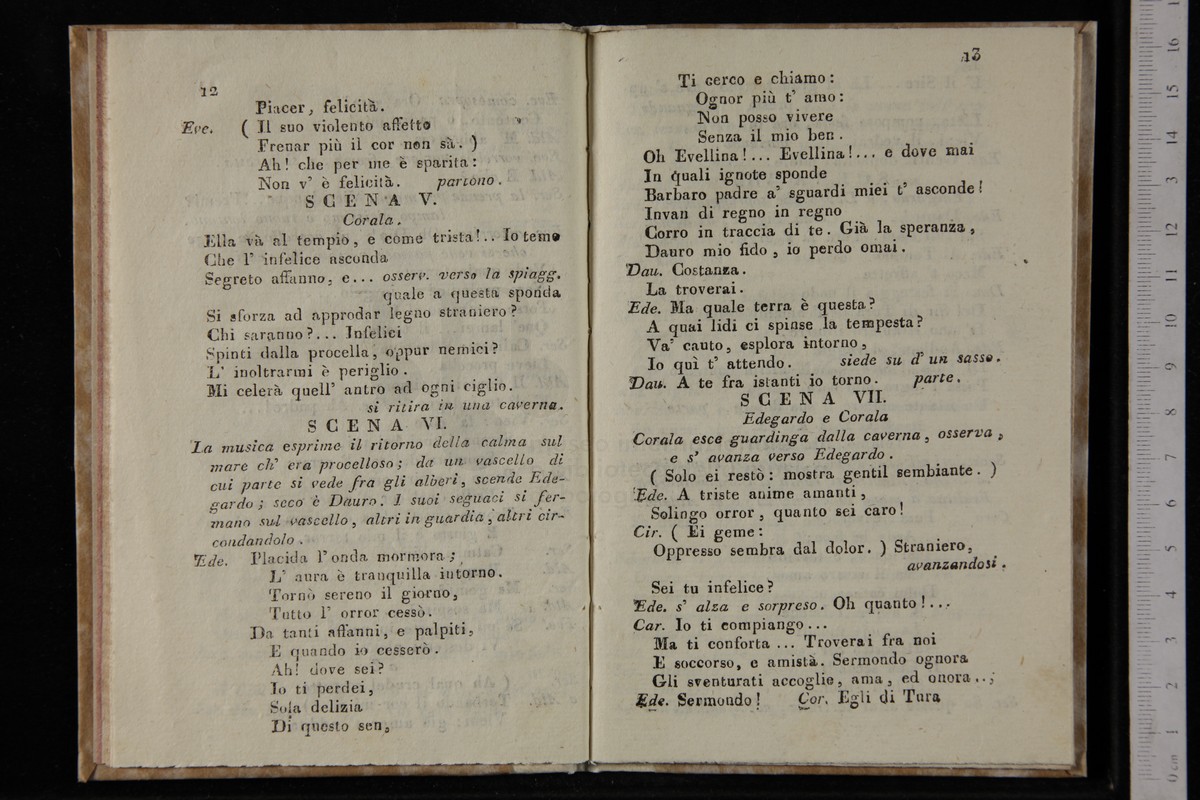 12
Piacer, felicità.
Eve. ( Il suo violento affetto
Frenar più il cor non sà. )
Ah! che per me è sparita:
Non v' è felicità. partono.
SCENA V.
Corala.
Ella và al tempio, e come trista!.. Io temo
Che l' infelice asconda
Segreto affanno, e... osserv. verso la spiagg.
quale a questa sponda
Si sforza ad approdar legno straniero?
Chi saranno?... Infelici
Spinti dalla procella, oppur nemici?
L' inoltrarmi è periglio.
Mi celerà quell' antro ad ogni ciglio.
si ritira in una caverna.
SCENA VI.
La musica esprime il ritorno della calma sul
mare ch' era procelloso; da un vascello di
cui parte si vede fra gli alberi, scende Ede-
gardo; seco è Dauro. I suoi seguaci si fer-
mano sul vascello, altri in guardia, altri cir-
condandolo.
Ede. Placida l' onda mormora;
L' aura è tranquilla intorno.
Tornò sereno il giorno,
Tutto l' orror cessò.
Da tanti affanni, e palpiti,
E quando io cesserò.
Ah! dove sei?
Io ti perdei,
Sola delizia
Di questo sen,
13
Ti cerco e chiamo:
Ognor più t' amo:
Non posso vivere
Senza il mio ben.
Oh Evellina!... Evellina!... e dove mai
In quali ignote sponde
Barbaro padre a' sguardi miei t' asconde!
Invan di regno in regno
Corro in traccia di te. Già la speranza,
Dauro mio fido, io perdo omai.
Dau. Costanza.
La troverai.
Ede. Ma quale terra è questa?
A quai lidi ci spinse la tempesta?
Va' cauto, esplora intorno,
Io quì t' attendo. siede su d' un sasso.
Dau. A te fra istanti io torno. parte.
SCENA VII.
Edegardo e Corala
Corala esce guardinga dalla caverna, osserva,
e s' avanza verso Edegardo.
( Solo ei restò: mostra gentil sembiante. )
Ede. A triste anime amanti,
Solingo orror, quanto sei caro!
Cir. ( Ei geme:
Oppresso sembra dal dolor. ) Straniero,
avanzandosi.
Sei tu infelice?
Ede. s' alza e sorpreso. Oh quanto!...
Car. Io ti compiango...
Ma ti conforta ... Troverai fra noi
E soccorso, e amistà. Sermondo ognora
Gli sventurati accoglie, ama, ed onora..;
Ede. Sermondo! Cor. Egli di Tura